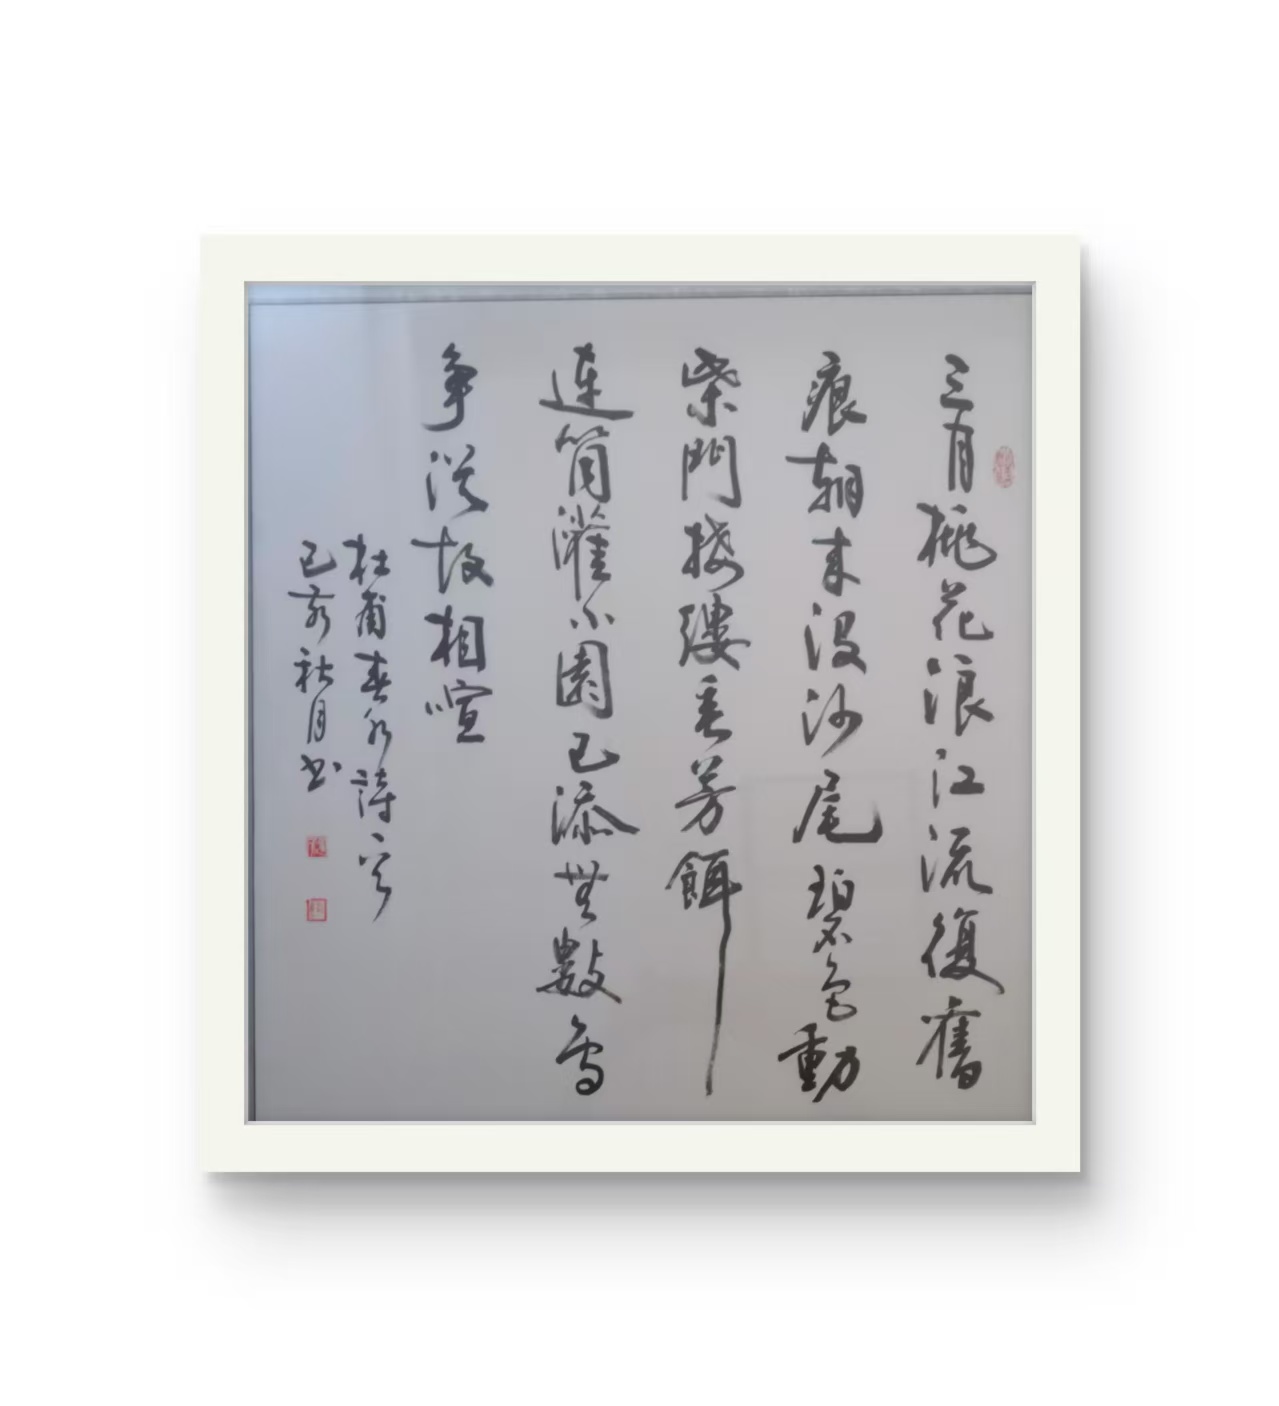 三月桃花浪江流復舊
痕朝来没沙尾碧色動
柴門接縷垂芳餌
連筒灌小園已添無數鳥
争浴故相喧
杜甫春水詩一首
己亥秋月书